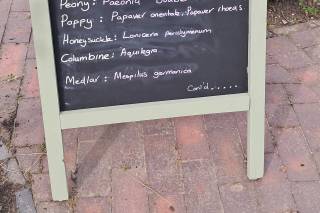 Peony: Paeonia
Poppy: Papaver orientale, Papaver rhoeas
Honeysuckle: Lonicera periclymenum
Columbine: Aquilegia
Medlar: Mespilus germanica
Cont'd.....